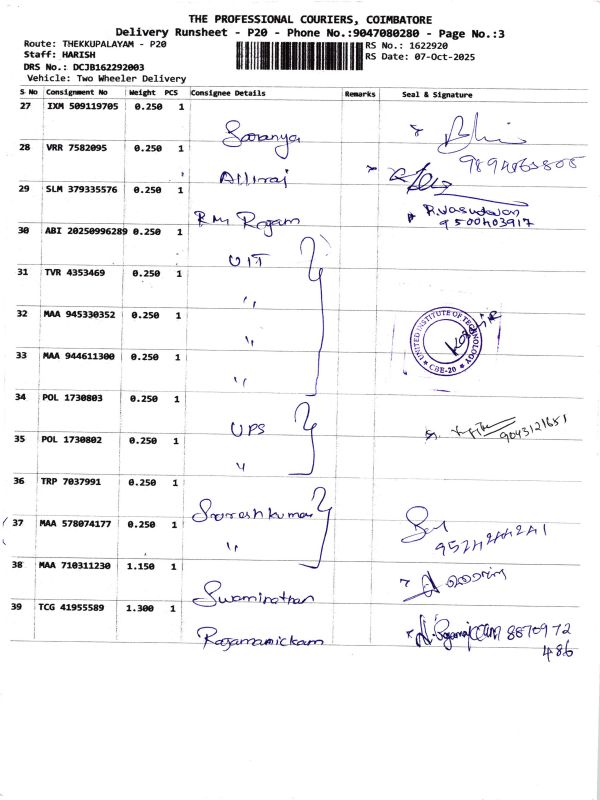 THE PROFESSIONAL COURIERS, COIMBATORE
Delivery Runsheet - P20 - Phone No.:9047080280 - Page No.:3
Route: THEKKUPALAYAM - P20
RS No.: 1622920
Staff: HARISH
RS Date: 07-Oct-2025
DRS No.: DCJB162292003
Vehicle: Two Wheeler Delivery
S No Consignment No Weight PCS Consignee Details Remarks Seal & Signature
27 IXM 509119705 0.250 1 Saranya
28 VRR 7582095 0.250 1 Alliraj
29 SLM 379335576 0.250 1
R.Vasudevan
9500403917
30 ABI 20250996289 0.250 1 UIT
31 TVR 4353469 0.250 1 "
32 MAA 945330352 0.250 1 "
UNITED INSTITUTE OF TECHNOLOGY
* CBE-20 *
33 MAA 944611300 0.250 1 "
34 POL 1730803 0.250 1 UPS
9043121651
35 POL 1730802 0.250 1 "
36 TRP 7037991 0.250 1 Sureshkumar
37 MAA 578074177 0.250 1 "
38 MAA 710311230 1.150 1 Swaminathan
39 TCG 41955589 1.300 1 Rajamanickam
8870972
486